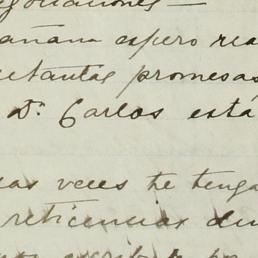 gociaciones —
añana espero rea
uetantas promesas
Dn. Carlos está
as veces te tenga
reticencias du